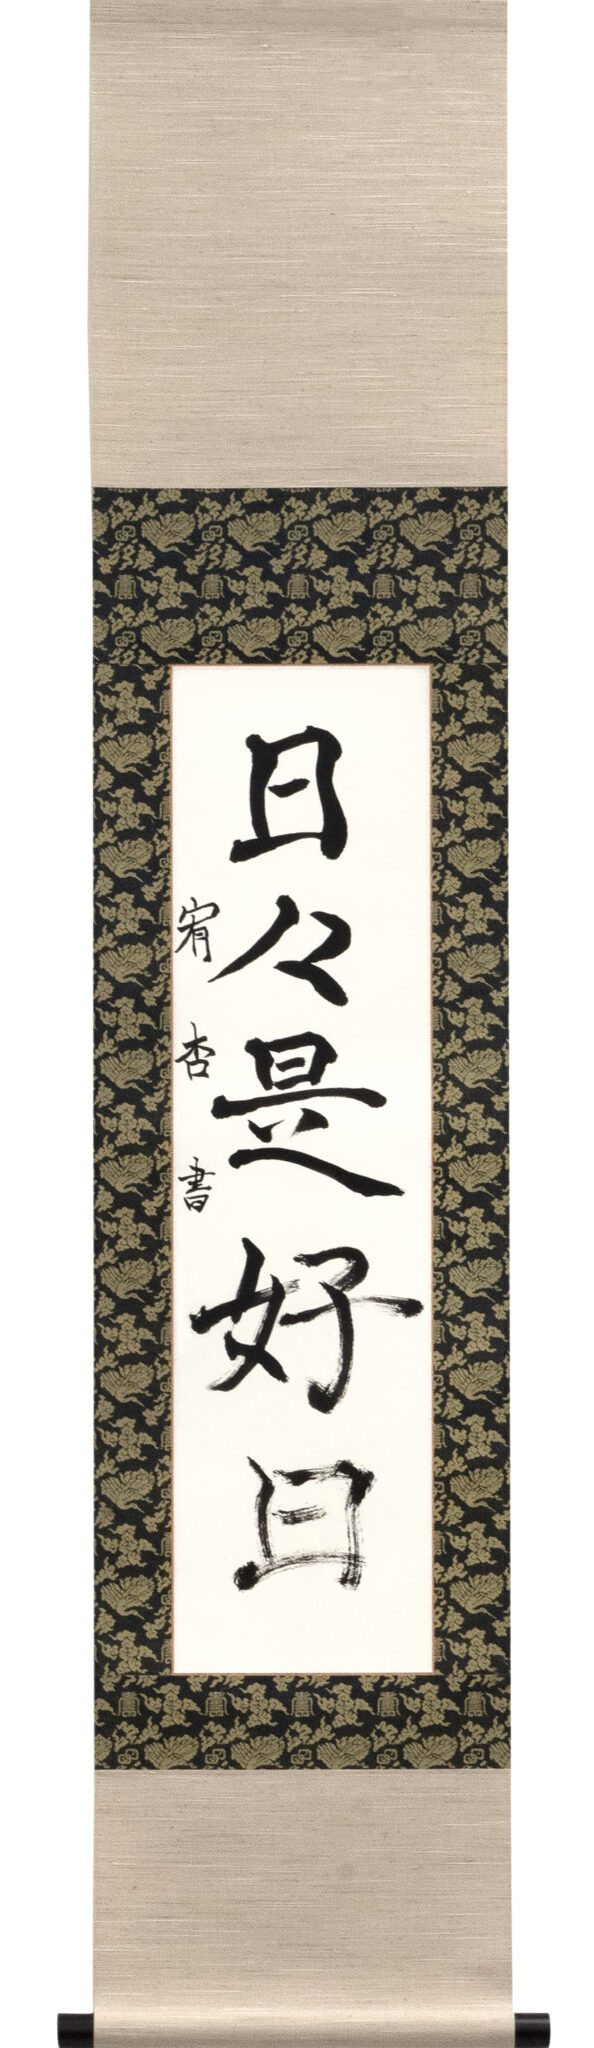 日々是好日
宥杏書